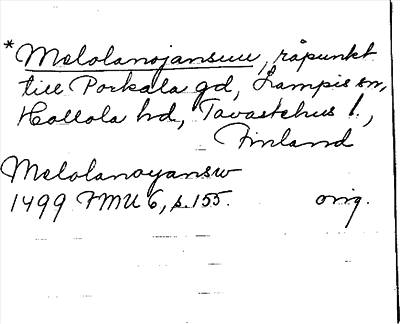 *Melolanojansuu, råpunkt
till Porkala gd, Lampis sn,
Hollola hd, Tavastehus l.,
Finland
Melolanoyansw
1499 FMU 6, s. 155. orig.